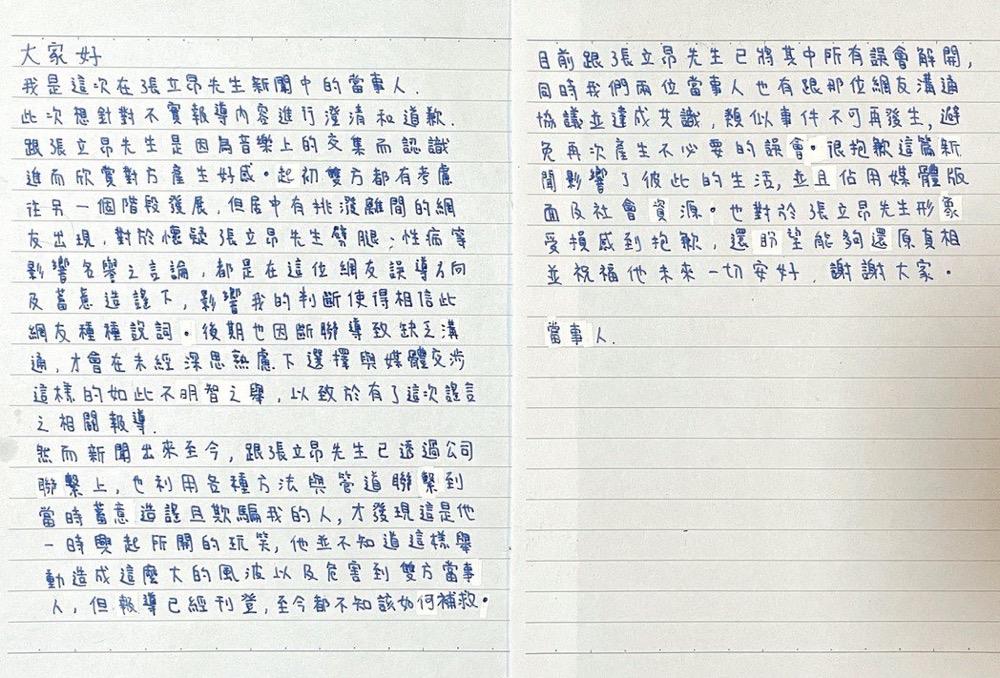 大家好
我是這次在張立昂先生新聞中的當事人.
此次想針對不實報導內容進行澄清和道歉.
跟張立昂先生是因為音樂上的交集而認識
進而欣賞對方產生好感。起初雙方都有考慮
往另一個階段發展,但居中有挑潑離間的網
友出現,對於懷疑張立昂先生劈腿;性病等
影響名譽之言論,都是在這位網友誤導方向
及蓄意造謠下,影響我的判斷使得相信此
網友種種說詞。後期也因斷聯導致缺乏溝
通,才會在未經深思熟慮下選擇與媒體交涉
這樣的如此不明智之舉,以致於有了這次謠言
之相關報導.
然而新聞出來至今,跟張立昂先生已透過公司
聯繫上,也利用各種方法與管道聯繫到
當時蓄意造謠且欺騙我的人,才發現這是他
一時興起所開的玩笑,他並不知道這樣舉
動造成這麼大的風波以及危害到雙方當事
人,但報導已經刊登,至今都不知該如何補救。
目前跟張立昂先生已將其中所有誤會解開,
同時我們兩位當事人也有跟那位網友溝通
協議並達成共識,類似事件不可再發生,避
免再次產生不必要的誤會。很抱歉這篇新
聞影響了彼此的生活,並且佔用媒體版
面及社會資源。也對於張立昂先生形象
受損感到抱歉,還盼望能夠還原真相
並祝福他未來一切安好,謝謝大家。
當事人.